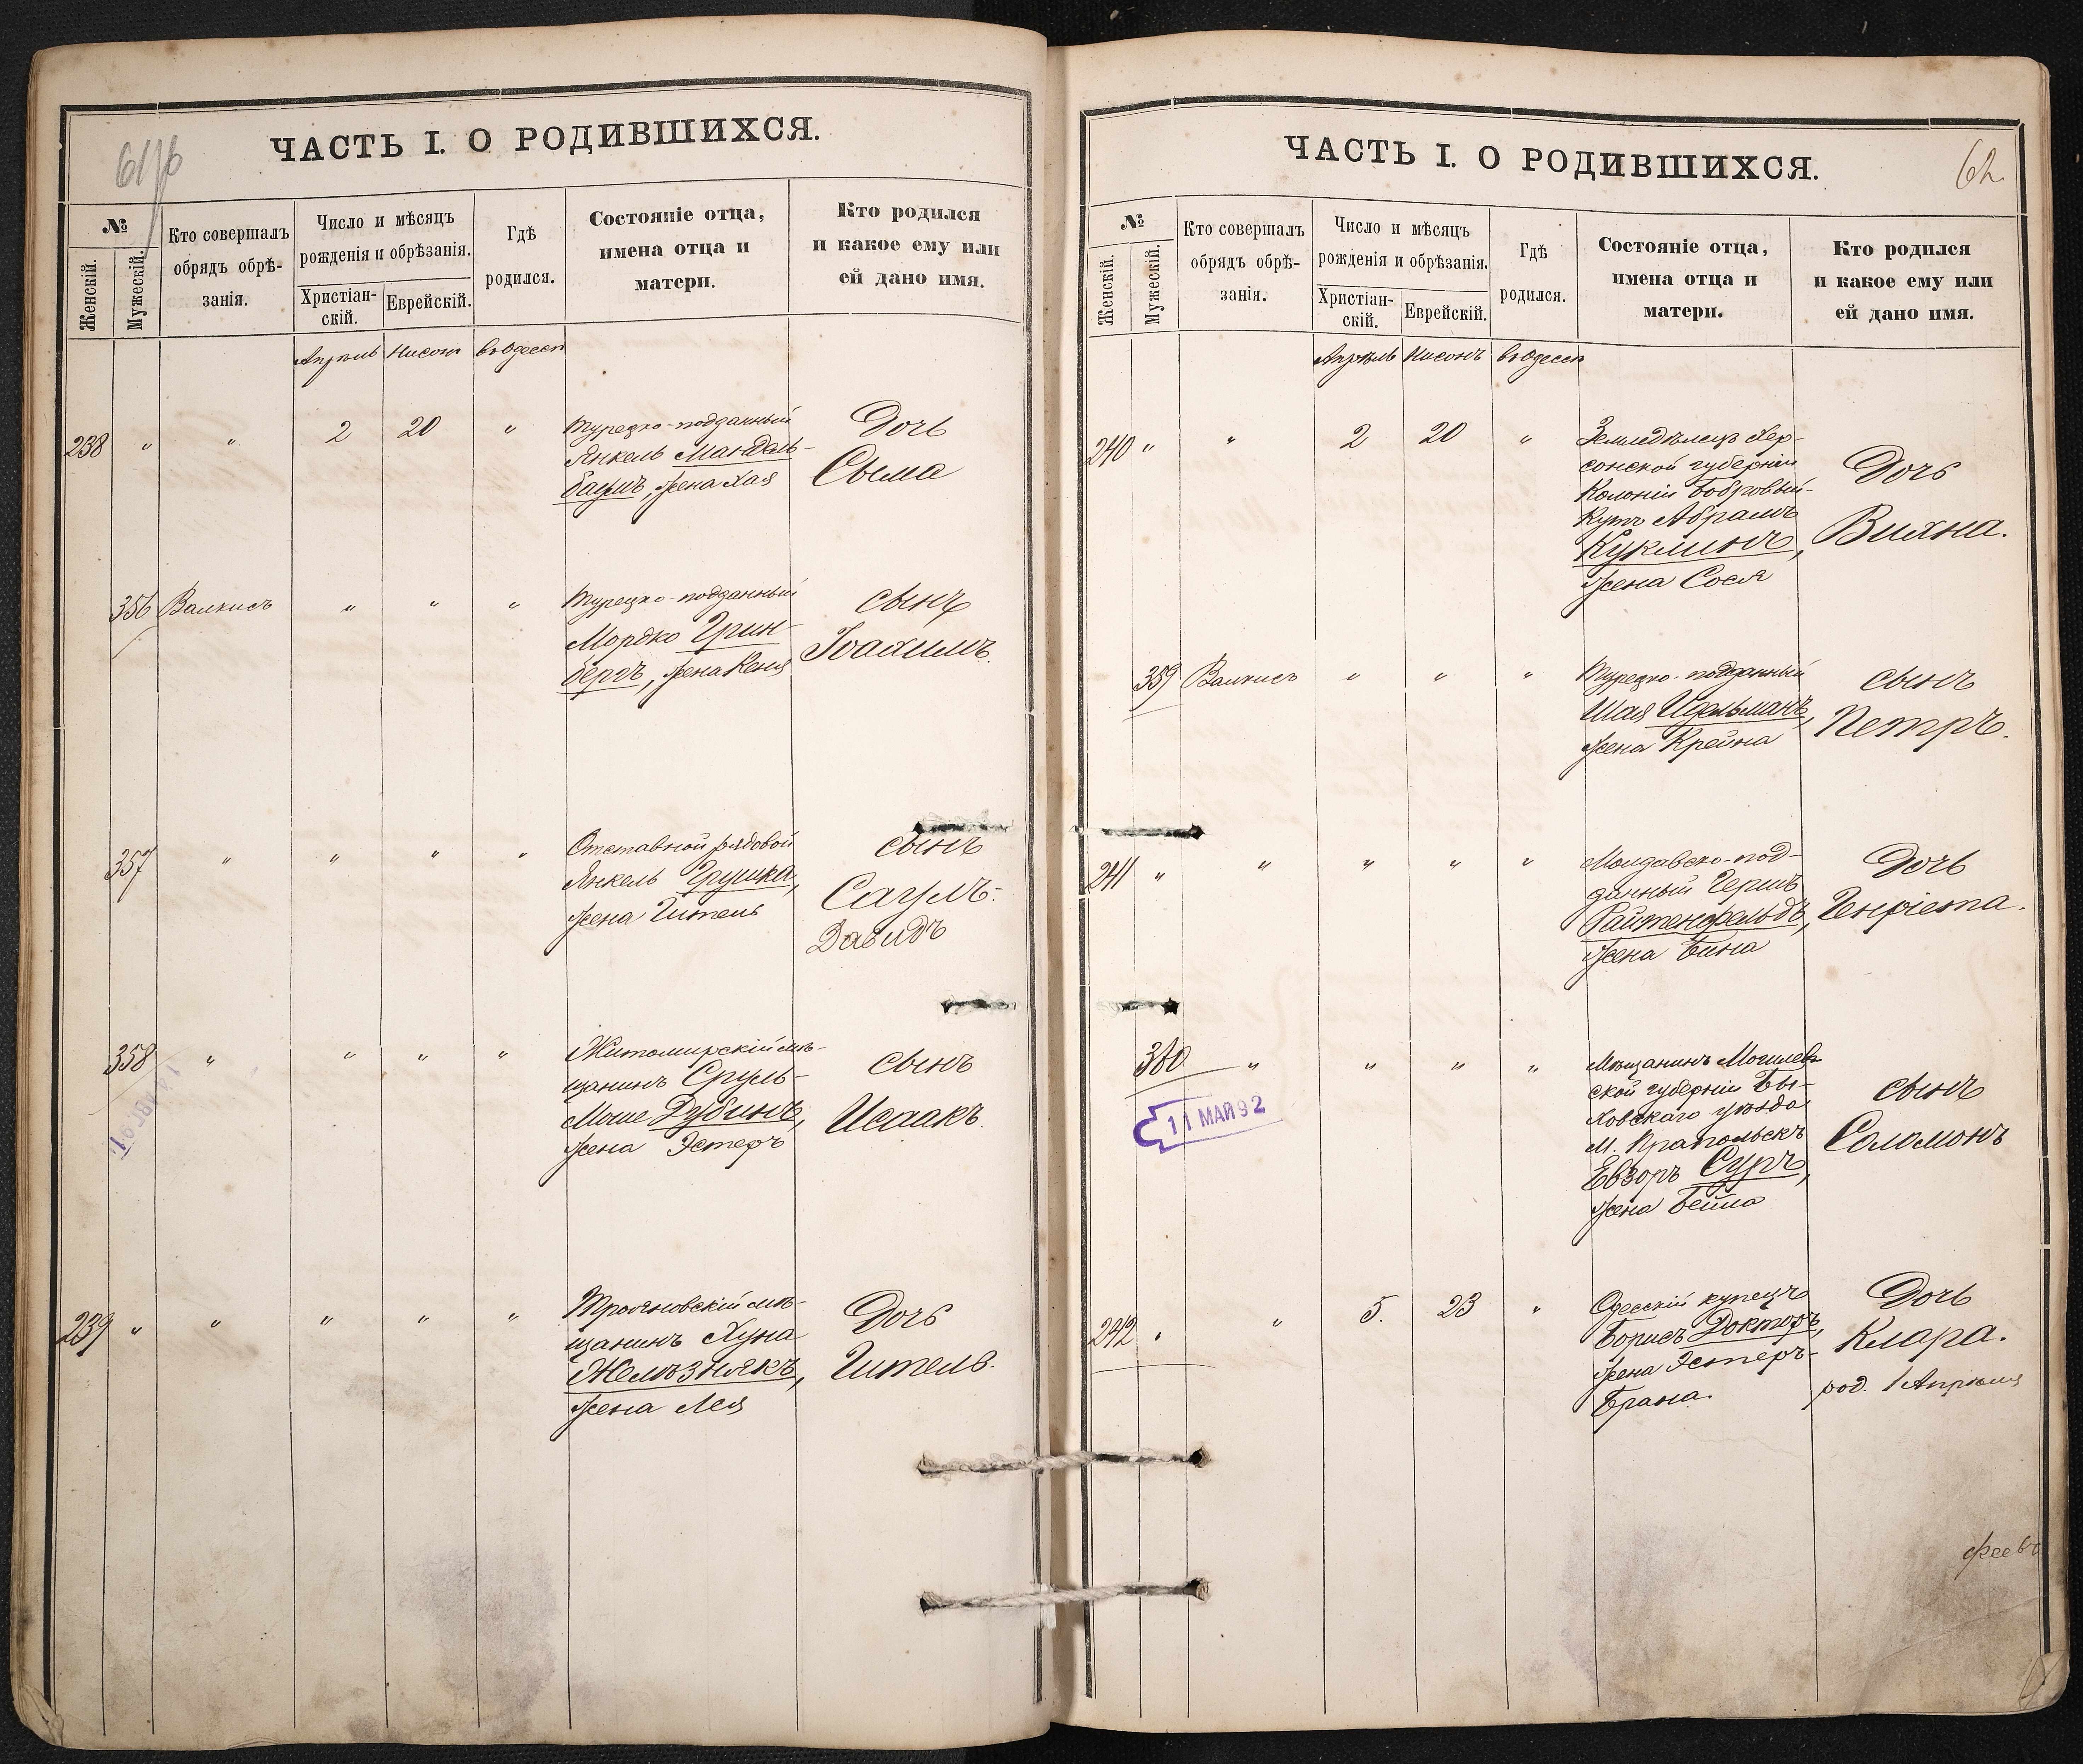 61/16
ЧАСТЬ I. О РОДИВШИХСЯ.
№
Женскій.
Мужескій.
Кто совершалъ
обрядъ обрѣ-
занія.
Число и мѣсяцъ
рожденія и обрѣзанія.
Христіан-
скій.
Еврейскій.
Гдѣ
родился.
Состояніе отца,
имена отца и
матери.
Кто родился
и какое ему или
ей дано имя.
Апрѣль Нисонъ въ Одессѣ
238 " " 2 20 "
Турецко-подданный
Янкель Мандель-
баумъ, жена Хая
Дочь
Сыма
356 Валкисъ " " "
Турецко-подданный
Мордко Грин-
бергъ, жена Кеня
сынъ
Іоахимъ.
357 " " " "
Отставной рядовой
Янкель Грушка,
жена Гитель
сынъ
Саулъ-
Давидъ
358 " " " "
Житомирскій мѣ-
щанинъ Сруль-
Мошe Дубинъ,
жена Эстеръ
сынъ
Исаакъ.
239 " " " " "
Трояновскій мѣ-
щанинъ Хуна
Желѣзнякъ,
жена Лея
Дочь
Гитель.
62
ЧАСТЬ I. О РОДИВШИХСЯ.
№
Женскій.
Мужескій.
Кто совершалъ
обрядъ обрѣ-
занія.
Число и мѣсяцъ
рожденія и обрѣзанія.
Христіан-
скій.
Еврейскій.
Гдѣ
родился.
Состояніе отца,
имена отца и
матери.
Кто родился
и какое ему или
ей дано имя.
Апрѣль Нисонъ въ Одессѣ
240 " " 2 20 "
Земледѣлецъ Хер-
сонской губерніи
Колоніи Бобровый-
Кутъ Абрамъ
Куклинъ,
жена Сося
Дочь
Вихна.
359 Валкисъ " " "
Турецко-подданный
Шая Идельманъ,
жена Крейна
сынъ
Петръ.
241 " " " " "
Молдавско-под-
данный Гершъ
Райтенфельдъ,
жена Бина
Дочь
Генріета.
360 " " " "
11 МАЙ 92
Мѣщанинъ Могилев-
ской губерніи Бы-
ховскаго уѣзда
М. Прапольскъ
Евзоръ Суръ,
жена Бейла
сынъ
Соломонъ
242 " " 5. 23 "
Одесскій купецъ
Борисъ Докторъ,
жена Эстеръ-
Брана.
Дочь
Клара.
род. 1 Апрѣля